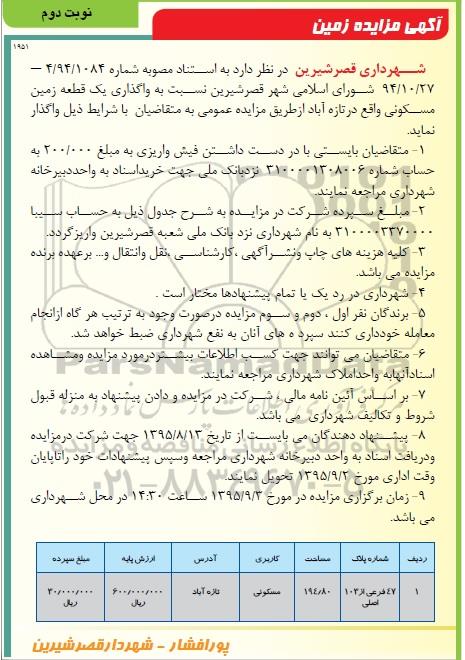 نوبت دوم
آگهی مزایده زمین
۱۹۵۱
شـــهرداری قصرشیرین در نظر دارد به اسـتناد مصوبه شماره ۴/۹۴/۱۰۸۴ –
۹۴/۱۰/۲۷ شـورای اسلامی شهر قصرشیرین نسـبت به واگذاری یک قطعه زمین
مسـکونی واقع درتازه آباد ازطریق مزایده عمومی به متقاضیان با شرایط ذیل واگذار
نماید.
۱- متقاضیان بایسـتی با در دسـت داشـتن فیش واریزی به مبلغ ۲۰۰/۰۰۰ به
حساب شماره ۳۱۰۰۰۰۱۳۰۸۰۰۶ نزدبانک ملی جهت خریداسناد به واحددبیرخانه
شهرداری مراجعه نمایند.
۲- مبلـغ سـپرده شـرکت در مزایـده به شـرح جدول ذیل به حسـاب سـیبا
۳۱۰۰۰۰۳۳۷۰۰۰۰ به نام شهرداری نزد بانک ملی شعبه قصرشیرین واریزگردد.
۳- کلیه هزینه های چاپ ونشـرآگهی ،کارشناسـی ،نقل وانتقال و... برعهده برنده
مزایده می باشد.
۴- شهرداری در رد یک یا تمام پیشنهادها مختار است .
۵- برندگان نفر اول ، دوم و سـوم مزایده درصورت وجود به ترتیب هر گاه ازانجام
معامله خودداری کنند سپرد ه های آنان به نفع شهرداری ضبط خواهد شد.
۶- متقاضیان می توانند جهت کسـب اطلاعات بیشـتردرمورد مزایده ومشـاهده
اسنادآنهابه واحداملاک شهرداری مراجعه نمایند.
۷- بر اسـاس آئین نامه مالی ، شـرکت در مزایده و دادن پیشنهاد به منزله قبول
شروط و تکالیف شهرداری می باشد.
۸- پیشـنهاد دهندگان می بایسـت از تاریخ ۱۳۹۵/۸/۱۳ جهت شرکت درمزایده
ودریافت اسناد به واحد دبیرخانه شهرداری مراجعه وسپس پیشنهادات خود راتاپایان
وقت اداری مورخ ۱۳۹۵/۹/۲ تحویل نمایند.
۹- زمان برگزاری مزایده در مورخ ۱۳۹۵/۹/۳ سـاعت ۱۴:۳۰ در محل شـهرداری
می باشد.
ردیف شماره پلاک مساحت کاربری آدرس ارزش پایه مبلغ سپرده
۱ ۴۷ فرعی از ۱۰۳ اصلی ۱۹۴/۸۰ مسکونی تازه آباد ۶۰۰/۰۰۰/۰۰۰ ریال ۳۰/۰۰۰/۰۰۰ ریال
پورافشار - شهردارقصرشیرین
ParsNamadData
۰۲۱-۸۸۳۴۹۶۷۰-۵